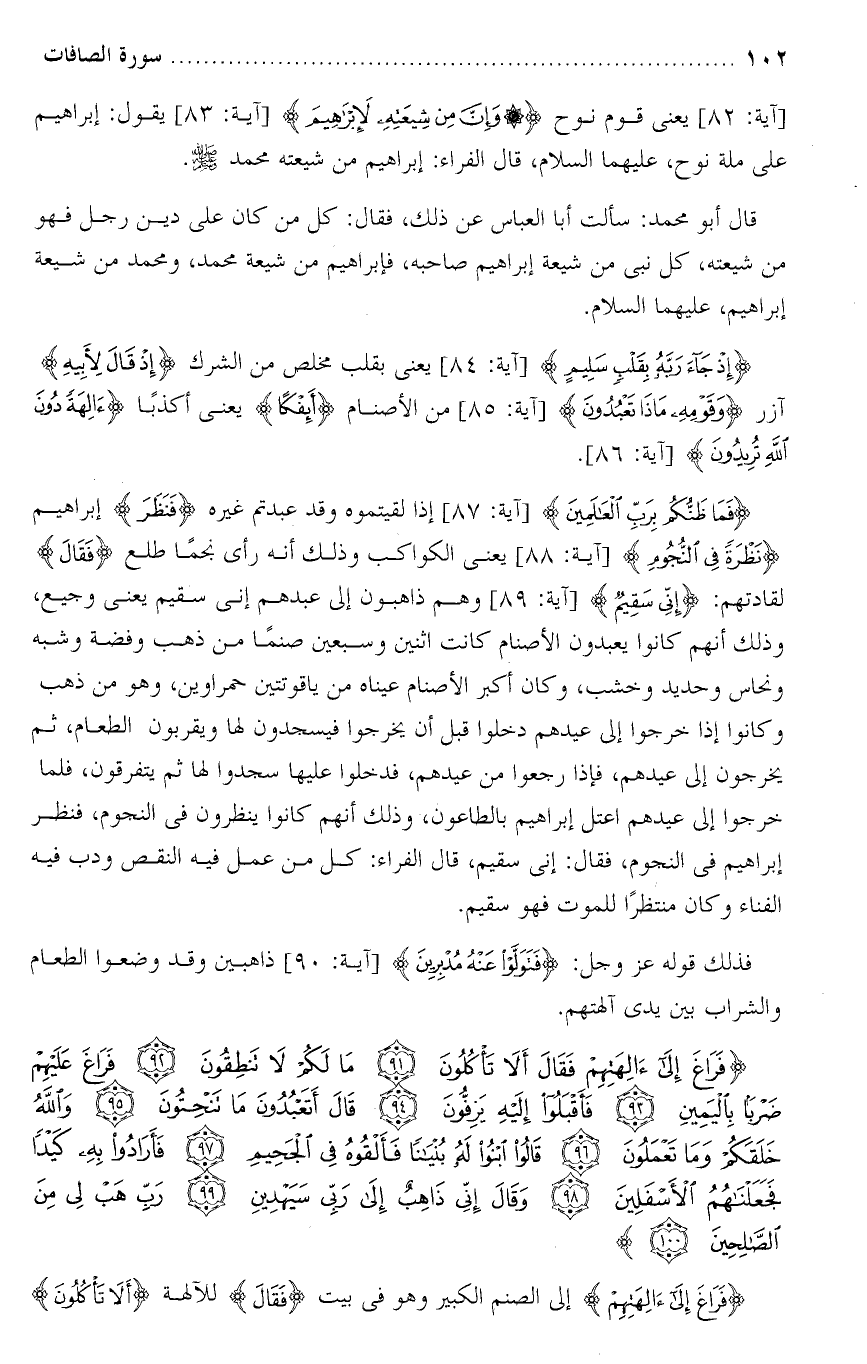 ١٠٢ ........................................................................ سورة الصافات
[آية: ٨٢] يعنى قوم نوح ﴿۞ وَإِنَّ مِن شِيعَتِهِۦ لَإِبۡرَٰهِيمَ﴾ [آية: ٨٣] يقول: إبراهيم
على ملة نوح، عليهما السلام، قال الفراء: إبراهيم من شيعته محمد ﷺ.
قال أبو محمد: سألت أبا العباس عن ذلك، فقال: كل من كان على دين رجل فهو
من شيعته، كل نبى من شيعة إبراهيم صاحبه، فإبراهيم من شيعة محمد، ومحمد من شيعة
إبراهيم، عليهما السلام.
﴿إِذۡ جَآءَ رَبَّهُۥ بِقَلۡبٖ سَلِيمٍ﴾ [آية: ٨٤] يعنى بقلب مخلص من الشرك ﴿إِذۡ قَالَ لِأَبِيهِ﴾
آزر ﴿وَقَوۡمِهِۦ مَاذَا تَعۡبُدُونَ﴾ [آية: ٨٥] من الأصنام ﴿أَئِفۡكًا﴾ يعنى أكذبًا ﴿ءَالِهَةٗ دُونَ
ٱللَّهِ تُرِيدُونَ﴾ [آية: ٨٦].
﴿فَمَا ظَنُّكُم بِرَبِّ ٱلۡعَٰلَمِينَ﴾ [آية: ٨٧] إذا لقيتموه وقد عبدتم غيره ﴿فَنَظَرَ﴾ إبراهيم
﴿نَظۡرَةٗ فِي ٱلنُّجُومِ﴾ [آية: ٨٨] يعنى الكواكب وذلك أنه رأى نجمًا طلع ﴿فَقَالَ﴾
لقادتهم: ﴿إِنِّي سَقِيمٞ﴾ [آية: ٨٩] وهم ذاهبون إلى عبدهم إنى سقيم يعنى وجيع،
وذلك أنهم كانوا يعبدون الأصنام كانت اثنين وسبعين صنمًا من ذهب وفضة وشبه
ونحاس وحديد وخشب، وكان أكبر الأصنام عيناه من ياقوتتين حمراوين، وهو من ذهب
وكانوا إذا خرجوا إلى عيدهم دخلوا قبل أن يخرجوا فيسجدون لها ويقربون الطعام، ثم
يخرجون إلى عيدهم، فإذا رجعوا من عيدهم، فدخلوا عليها سجدوا لها ثم يتفرقون، فلما
خرجوا إلى عيدهم اعتل إبراهيم بالطاعون، وذلك أنهم كانوا ينظرون فى النجوم، فنظر
إبراهيم فى النجوم، فقال: إنى سقيم، قال الفراء: كل من عمل فيه النقص ودب فيه
الفناء وكان منتظرًا للموت فهو سقيم.
فذلك قوله عز وجل: ﴿فَتَوَلَّوۡاْ عَنۡهُ مُدۡبِرِينَ﴾ [آية: ٩٠] ذاهبين وقد وضعوا الطعام
والشراب بين يدى آلهتهم.
﴿فَرَاغَ إِلَىٰٓ ءَالِهَتِهِمۡ فَقَالَ أَلَا تَأۡكُلُونَ ٩١ مَا لَكُمۡ لَا تَنطِقُونَ ٩٢ فَرَاغَ عَلَيۡهِمۡ
ضَرۡبَۢا بِٱلۡيَمِينِ ٩٣ فَأَقۡبَلُوٓاْ إِلَيۡهِ يَزِفُّونَ ٩٤ قَالَ أَتَعۡبُدُونَ مَا تَنۡحِتُونَ ٩٥ وَٱللَّهُ
خَلَقَكُمۡ وَمَا تَعۡمَلُونَ ٩٦ قَالُواْ ٱبۡنُواْ لَهُۥ بُنۡيَٰنٗا فَأَلۡقُوهُ فِي ٱلۡجَحِيمِ ٩٧ فَأَرَادُواْ بِهِۦ كَيۡدٗا
فَجَعَلۡنَٰهُمُ ٱلۡأَسۡفَلِينَ ٩٨ وَقَالَ إِنِّي ذَاهِبٌ إِلَىٰ رَبِّي سَيَهۡدِينِ ٩٩ رَبِّ هَبۡ لِي مِنَ
ٱلصَّٰلِحِينَ ١٠٠﴾
﴿فَرَاغَ إِلَىٰٓ ءَالِهَتِهِمۡ﴾ إلى الصنم الكبير وهو فى بيت ﴿فَقَالَ﴾ للآلهة ﴿أَلَا تَأۡكُلُونَ﴾